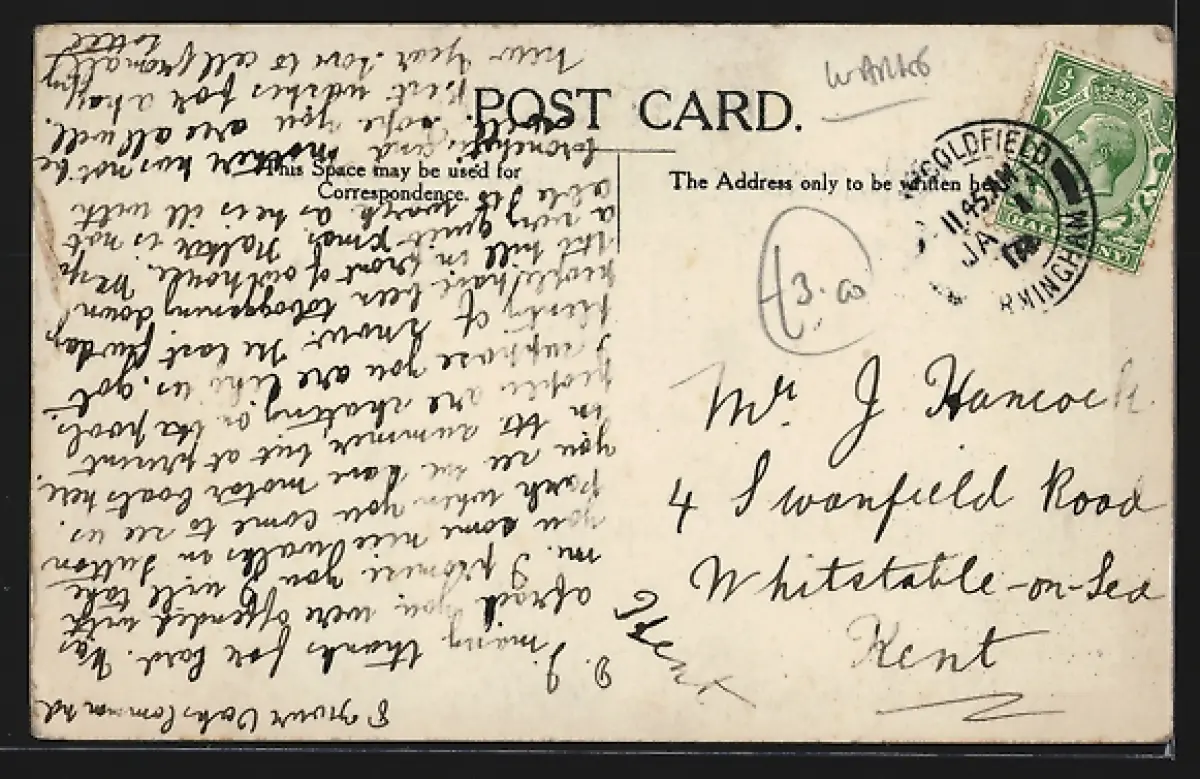 POST CARD.
WARKS
This Space may be used for
Correspondence.
The Address only to be written here
COLDFIELD
11.45 AM
JA
HALF PENNY
£3.00
Mr. J Hancock.
4 Swanfield Road
Whitstable-on-Sea
Kent
D. J.
many thanks for Card. Was
afraid you were offended with
me. I promise you I will take
you some nice walks in Sutton
park when you come to see us.
you see we have motor boats here.
in the summer but at present
people are skating on the pools.
I suppose you are like us. got
plenty of snow. The last few days
people have been toboganning down
the hill in front of our house.
a very quiet Xmas. Walter is not
able to work as he is ill with
bronchitis and mother has not be
well. Hope you are all well.
best wishes for a happy
New Year. Love to all from all
Lottie